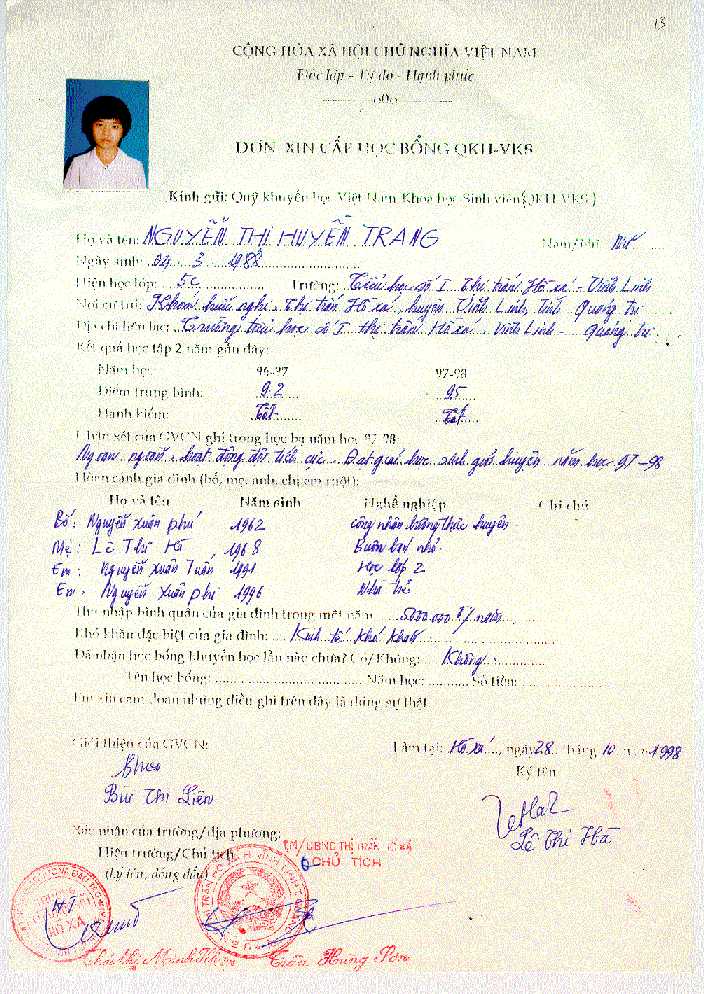 13
CỘNG HÒA XÃ HỘI CHỦ NGHĨA VIỆT NAM
Độc lập - Tự do - Hạnh phúc
o0o
ĐƠN XIN CẤP HỌC BỔNG QKH-VKS
Kính gửi: Quỹ khuyến học Việt Nam-Khoa học Sinh viên (QKH-VKS)
Họ và tên: NGUYỄN THỊ HUYỀN TRANG Nam/Nữ: Nữ
Ngày sinh: 24 - 3 - 1988
Hiện học lớp: 5C Trường: Tiểu học số I Thị trấn Hồ xá - Vĩnh Linh
Nơi cư trú: Khóm hữu nghị - Thị trấn Hồ xá, huyện Vĩnh Linh, Tỉnh Quảng trị
Địa chỉ liên hệ: Trường tiểu học số I thị trấn Hồ xá - Vĩnh Linh - Quảng trị
Kết quả học tập 2 năm gần đây:
Năm học 96-97 97-98
Điểm trung bình: 9.2 9.5
Hạnh kiểm: Tốt Tốt
Nhận xét của GVCN ghi trong học bạ năm học 97-98
Ngoan ngoãn, hoạt động đội tích cực. Đạt giải học sinh giỏi huyện năm học 97-98
Hoàn cảnh gia đình (bố, mẹ, anh, chị em ruột):
Họ và tên Năm sinh Nghề nghiệp Ghi chú
Bố: Nguyễn xuân phú 1962 công nhân lương thực huyện
Mẹ: Lê Thị Hà 1968 Buôn bán nhỏ
Em: Nguyễn xuân Tuấn 1991 Học lớp 2
Em: Nguyễn xuân phi 1996 Nhà trẻ
Thu nhập bình quân của gia đình trong một năm: 5000.000 đ/năm
Khó khăn đặc biệt của gia đình: Kinh tế khó khăn
Đã nhận học bổng khuyến học lần nào chưa? Có/Không: Không
Tên học bổng: Năm học: Số tiền:
Em xin cam đoan những điều ghi trên đây là đúng sự thật
Giới thiệu của GVCN: Làm tại: Hồ xá, ngày 28 tháng 10 năm 1998
Ký tên
Bùi Thị Liên
Lê Thị Hà
Xác nhận của trường/địa phương: TM/UBND THỊ TRẤN HỒ XÁ
Hiệu trưởng/Chủ tịch CHỦ TỊCH
(ký tên, đóng dấu)
Trần Hưng